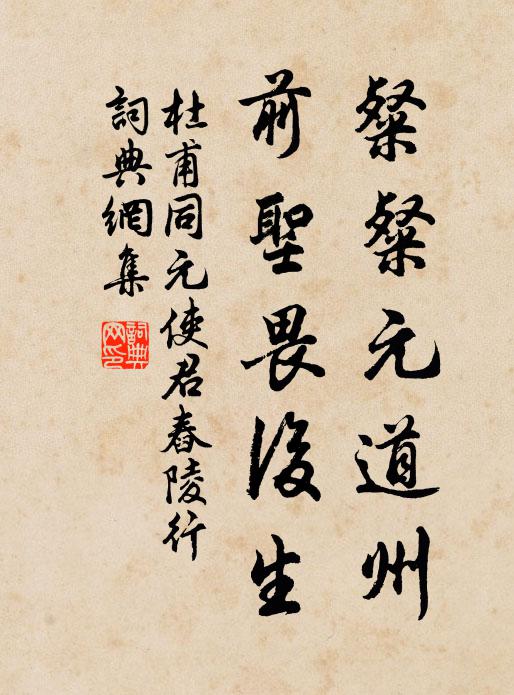 粲粲元道州
前聖畏後生
杜甫同元使君舂陵行
詞典網集
詞典網印